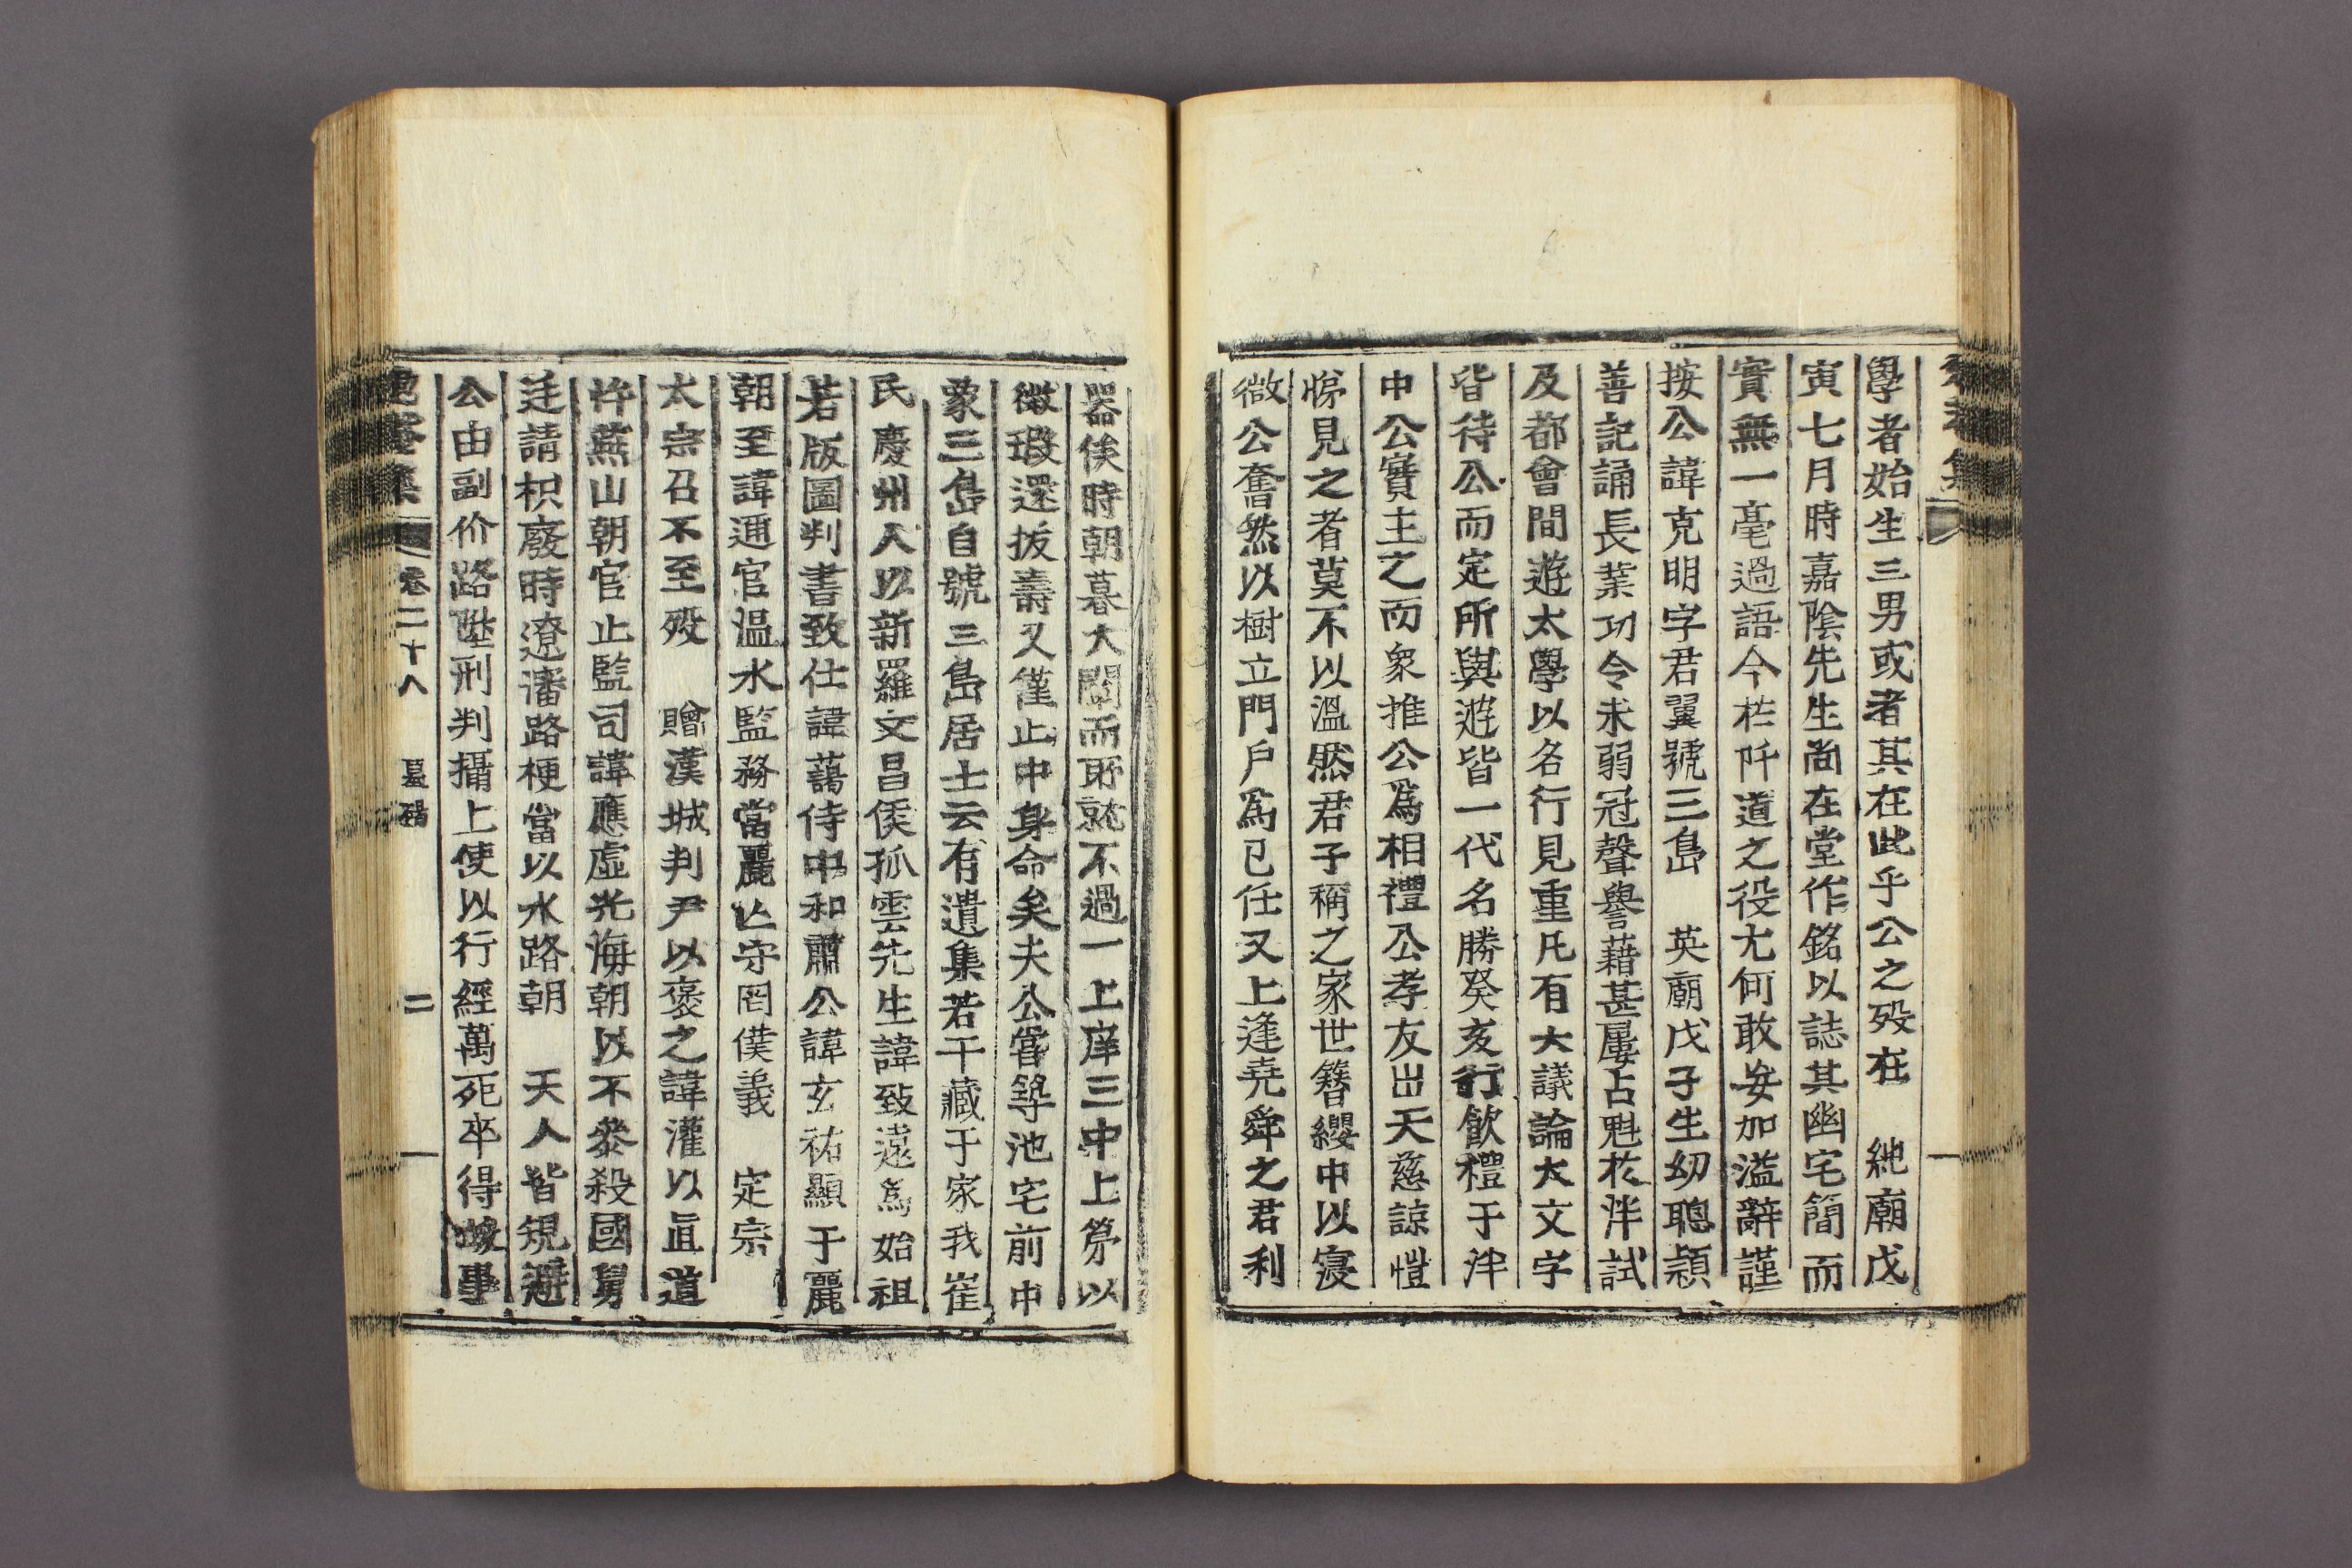 學者始生三男或者其在此乎公之歿在 純廟戊
寅七月時嘉陰先生尚在堂作銘以誌其幽宅簡而
實無一毫過語今於阡道之役尤何敢妄加溢辭謹
按公諱克明字君翼號三島 英廟戊子生幼聰穎
善記誦長業功令未弱冠聲譽藉甚屢占魁於泮試
及都會間遊太學以名行見重凡有大議論大文字
皆待公而定所與遊皆一代名勝癸亥行飮禮于泮
中公實主之而衆推公爲相禮公孝友出天慈諒愷
悌見之者莫不以溫然君子稱之家世簪纓中以寖
微公奮然以樹立門戶爲已任又上逢堯舜之君利
器俟時朝暮大闡而所就不過一上庠三中上第以
微瑕還拔壽又僅止中身命矣夫公嘗築池宅前中
蒙三島自號三島居士云有遺集若干藏于家我崔
民慶州人以新羅文昌侯孤雲先生諱致遠爲始祖
若版圖判書致仕諱䕏侍中和肅公諱玄祐顯于麗
朝至諱邇官溫水監務當麗亾守罔僕義 定宗
太宗召不至歿 贈漢城判尹以褒之諱灌以直道
忤燕山朝官止監司諱應虛光海朝以不參殺國舅
廷請枳廢時遼瀋路梗當以水路朝 天人皆規避
公由副价路陞刑判攝上使以行經萬死卒得竣事
卷二十八 墓碣 二